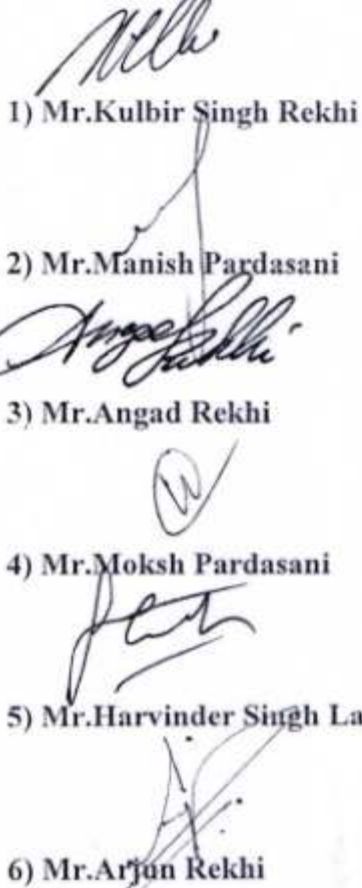 1) Mr.Kulbir Singh Rekhi
2) Mr.Manish Pardasani
Angad Rekhi
3) Mr.Angad Rekhi
4) Mr.Moksh Pardasani
5) Mr.Harvinder Singh La
6) Mr.Arjun Rekhi